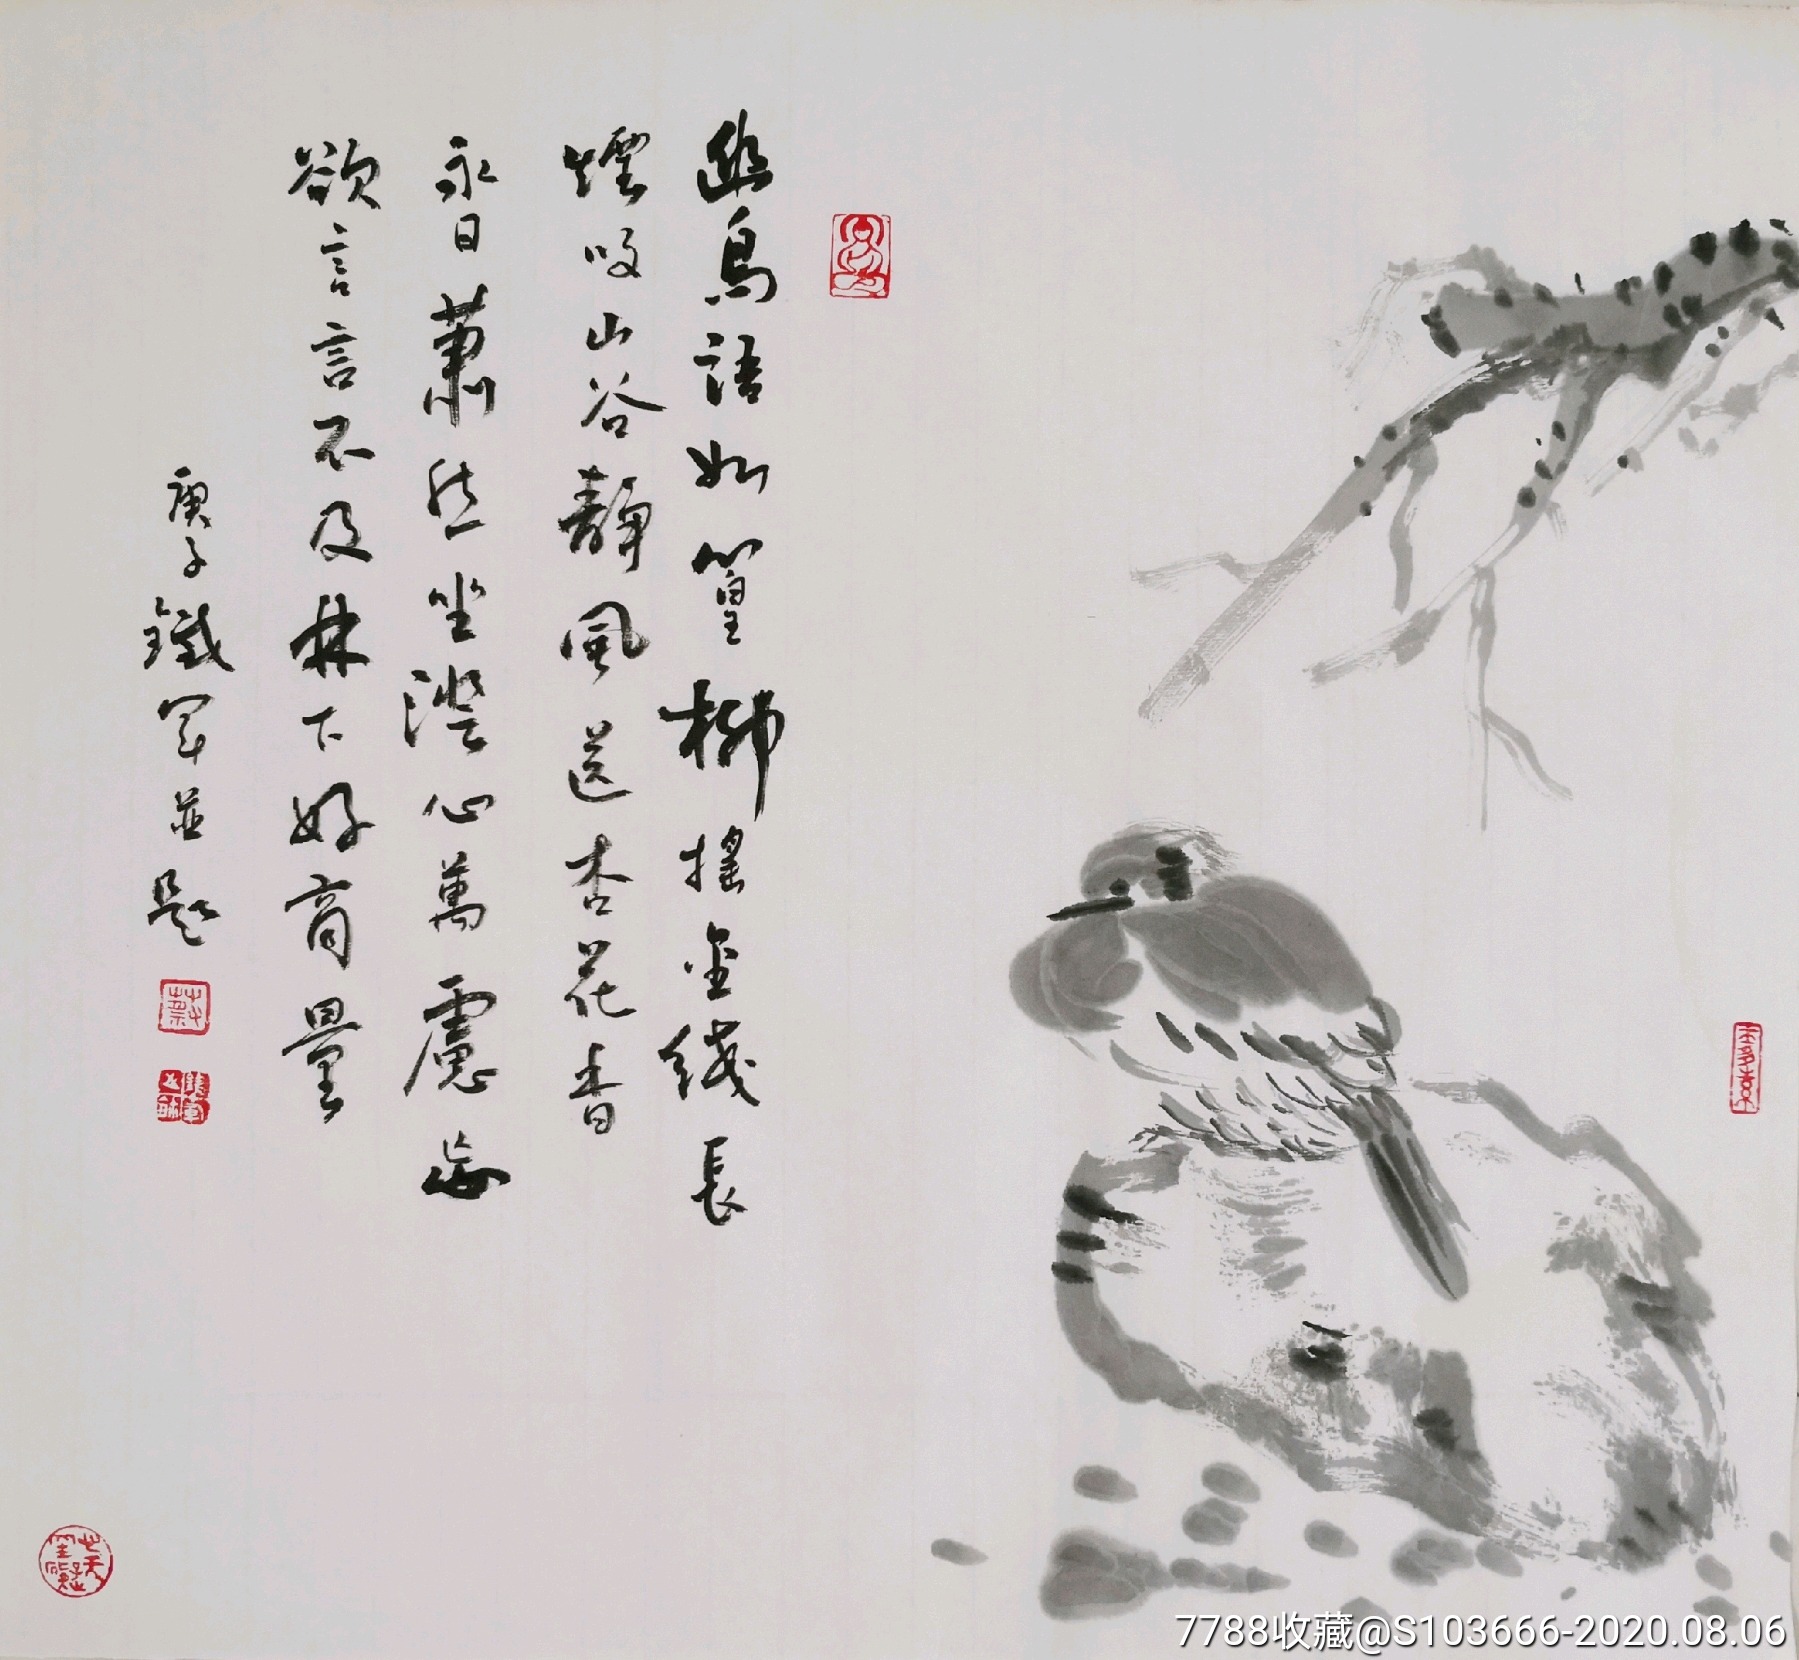 幽鳥語如篁柳搖金綫長
煙收山谷靜風送杏花香
永日蕭然坐澄心萬慮忘
欲言言不及林下好商量
庚子鐵軍並題
蔡
7788收藏@S103666-2020.08.06